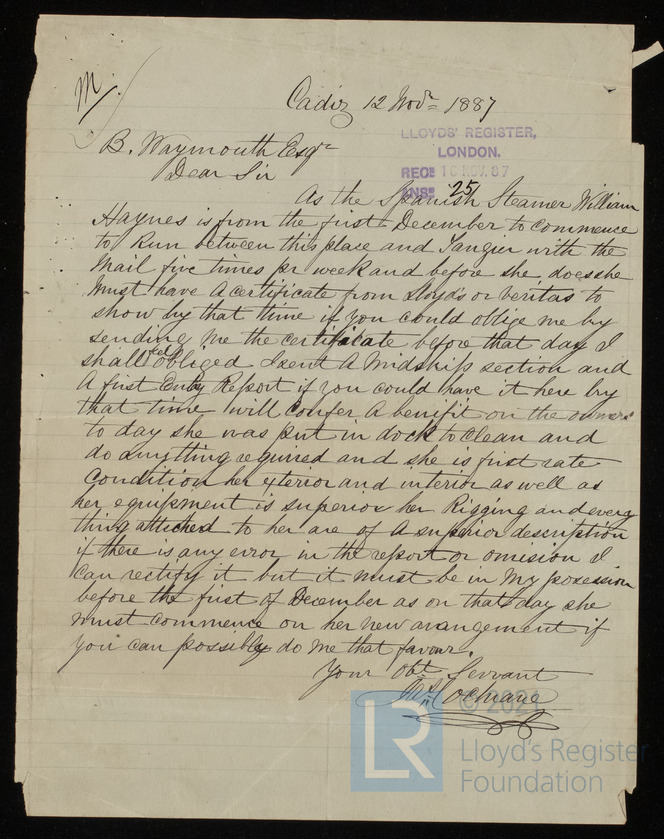 M/
Cadiz 12 Novr = 1887
B. Waymouth Esqr
Dear Sir
LLOYDS' REGISTER,
LONDON.
RECD 16 NOV. 87
ANSD 25/
As the Spanish Steamer William
Haynes is from the first December to commence
to Run between this place and Tangier with the
Mail five times pr week and before she does she
Must have A certificate from Lloyds or veritas to
show by that time if you could oblige me by
sending me the certificate before that day I
shall feel obliged I sent A Midship section and
A first Entry Report if you could have it here by
that time will confer A benifit on the owners
to day she was put in dock to clean and
do anything required and she is first rate
Condition her exterior and interior as well as
her equipment is superior her Rigging and every
thing attached to her are of A superior description
if there is any error in the report or omision I
can rectify it but it must be in My posession
before the first of December as on that day she
must commence on her new arrangement if
you can possibly do me that favour.
Your Obt Servant
Cochrane
© 2021
LR
Lloyd's Register
Foundation